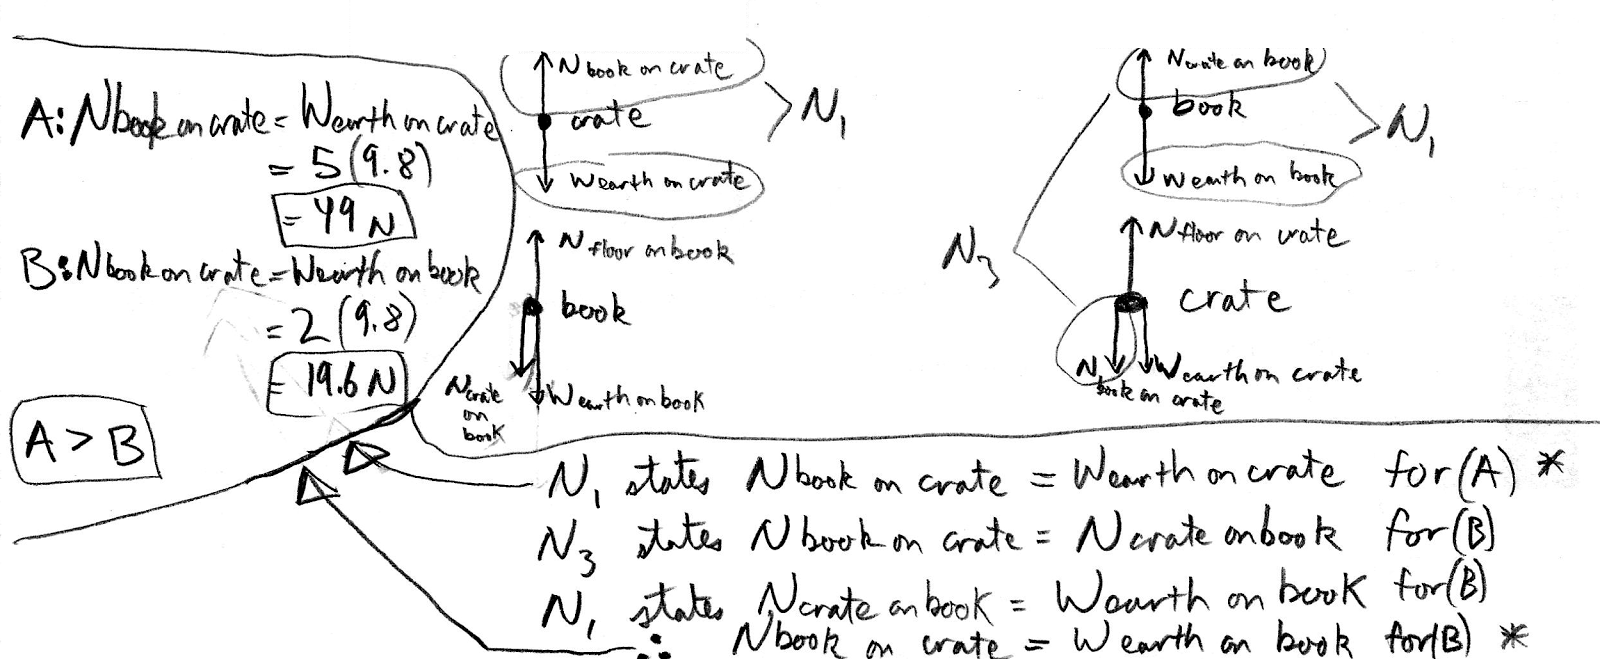 A: N book on crate = W earth on crate
= 5 (9.8)
= 49 N
B: N book on crate = W earth on book
= 2 (9.8)
= 19.6 N
A > B
N book on crate
crate
W earth on crate
N1
N floor on book
book
N crate on book
W earth on book
N crate on book
book
W earth on book
N1
N3
N floor on crate
crate
N book on crate
W earth on crate
N1 states N book on crate = W earth on crate for (A) *
N3 states N book on crate = N crate on book for (B)
N1 states N crate on book = W earth on book for (B)
∴ N book on crate = W earth on book for (B) *